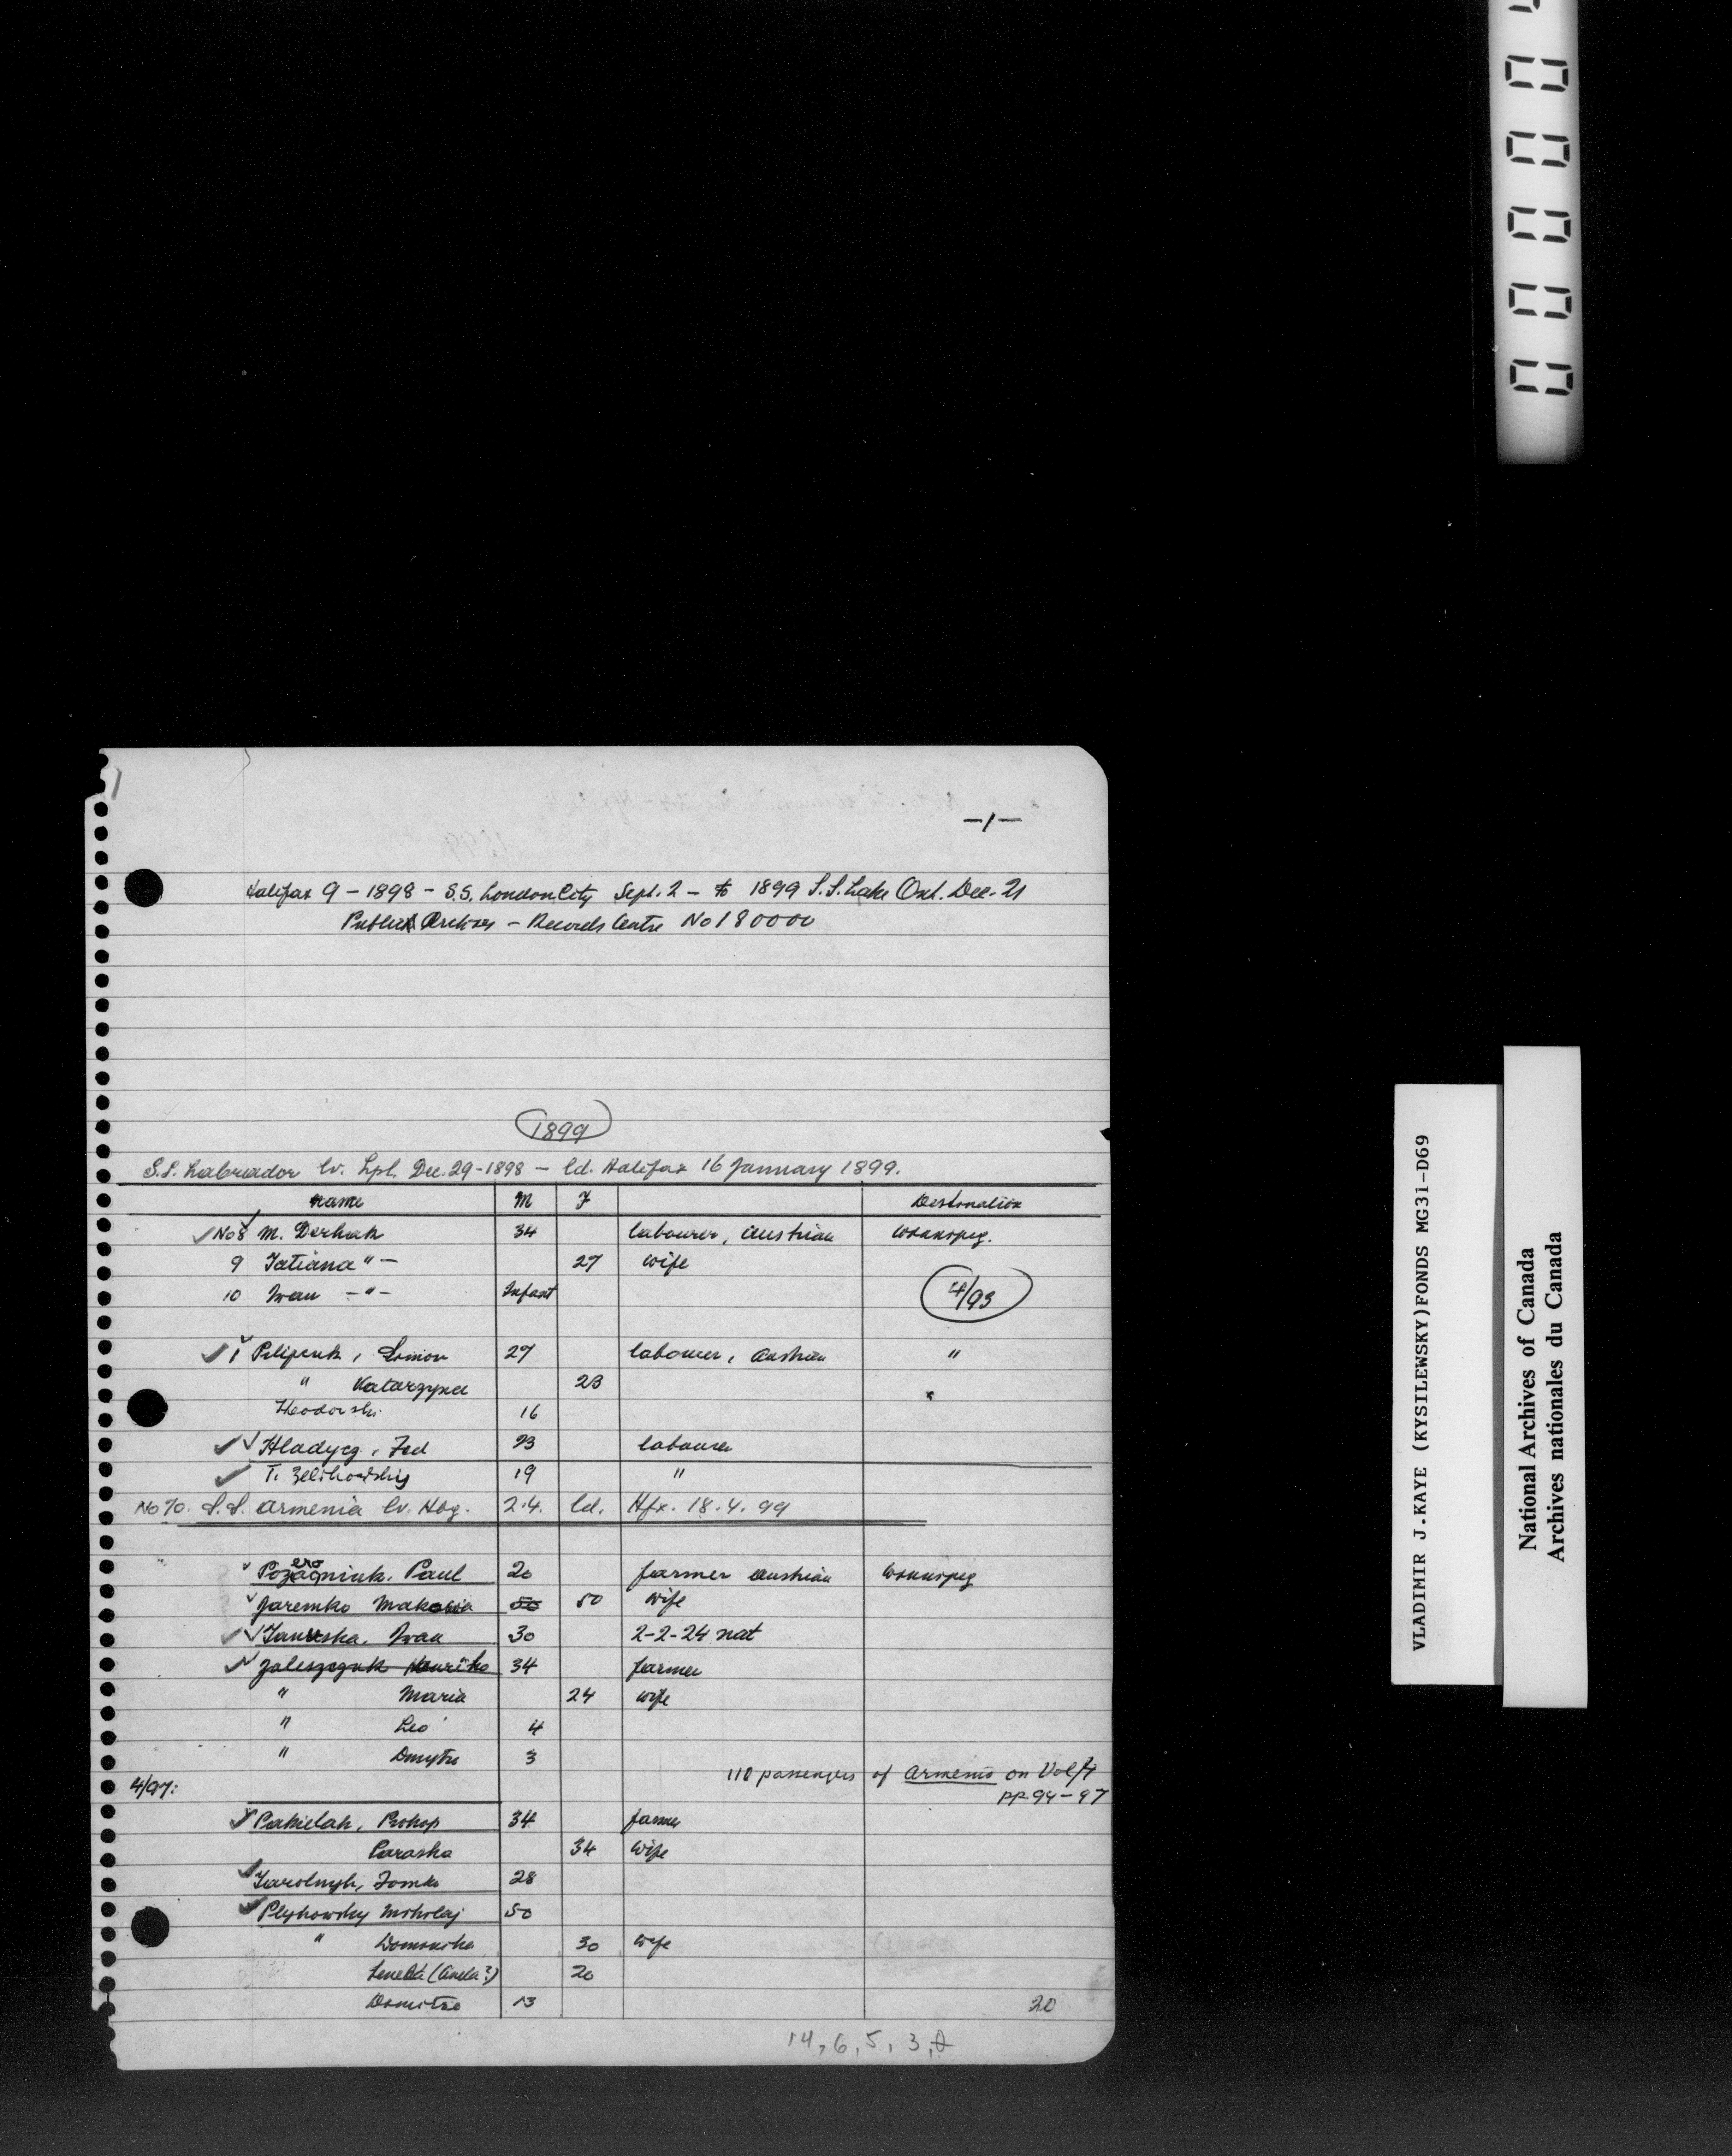 -1-
Halifax 9 - 1898 - S.S. London City Sept. 2 - to 1899 S.S. Lake Ont. Dec. 21
Public Archives - Records Centre No 180000
1899
S.S. Labrador lv. Lpl. Dec. 29-1898 - ld. Halifax 16 January 1899.
Name M F Destination
No 8 M. Derhak 34 labourer, Austrian Winnipeg.
9 Tatiana " - 27 wife
10 Iwan - " - Infant
4/93
1 Pilipcuk, Simion 27 labourer, Austrian "
" Katarzyna 23 "
Theodorski 16
Hladycz, Fed 23 labourer
T. Zelihowskij 19 "
No 70. S.S. Armenia lv. Hbg. 2.4. ld. Hfx. 18.4.99
Pozacniuk, Paul 20 farmer Austrian Winnipeg
ero
Jaremko 50 50 wife
Iwan 30 2-2-24 nat
Zaleszczuk 34 farmer
" Maria 24 wife
" Leo 4
" Dmytro 3
110 passengers of Armenia on Vol/4
4/97: pp 94-97
Pakielah, Prokop 34 farmer
Paraska 34 wife
Tomko 28
Plyhowsky Mikolaj 50
" Domonika 30 wife
(Anela?) 20
Domitro 13 20
14, 6, 5, 3,
VLADIMIR J.KAYE (KYSILEWSKY)FONDS MG31-D69
National Archives of Canada
Archives nationales du Canada
00000